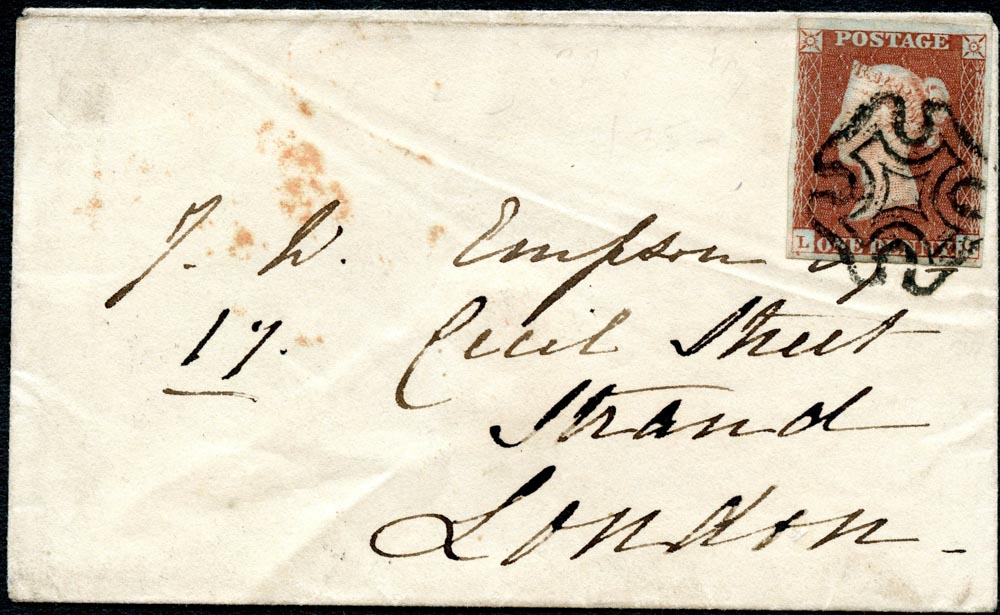 POSTAGE
L ONE PENNY G
J. W. Empson Esqr
17. Cecil Street
Strand
London